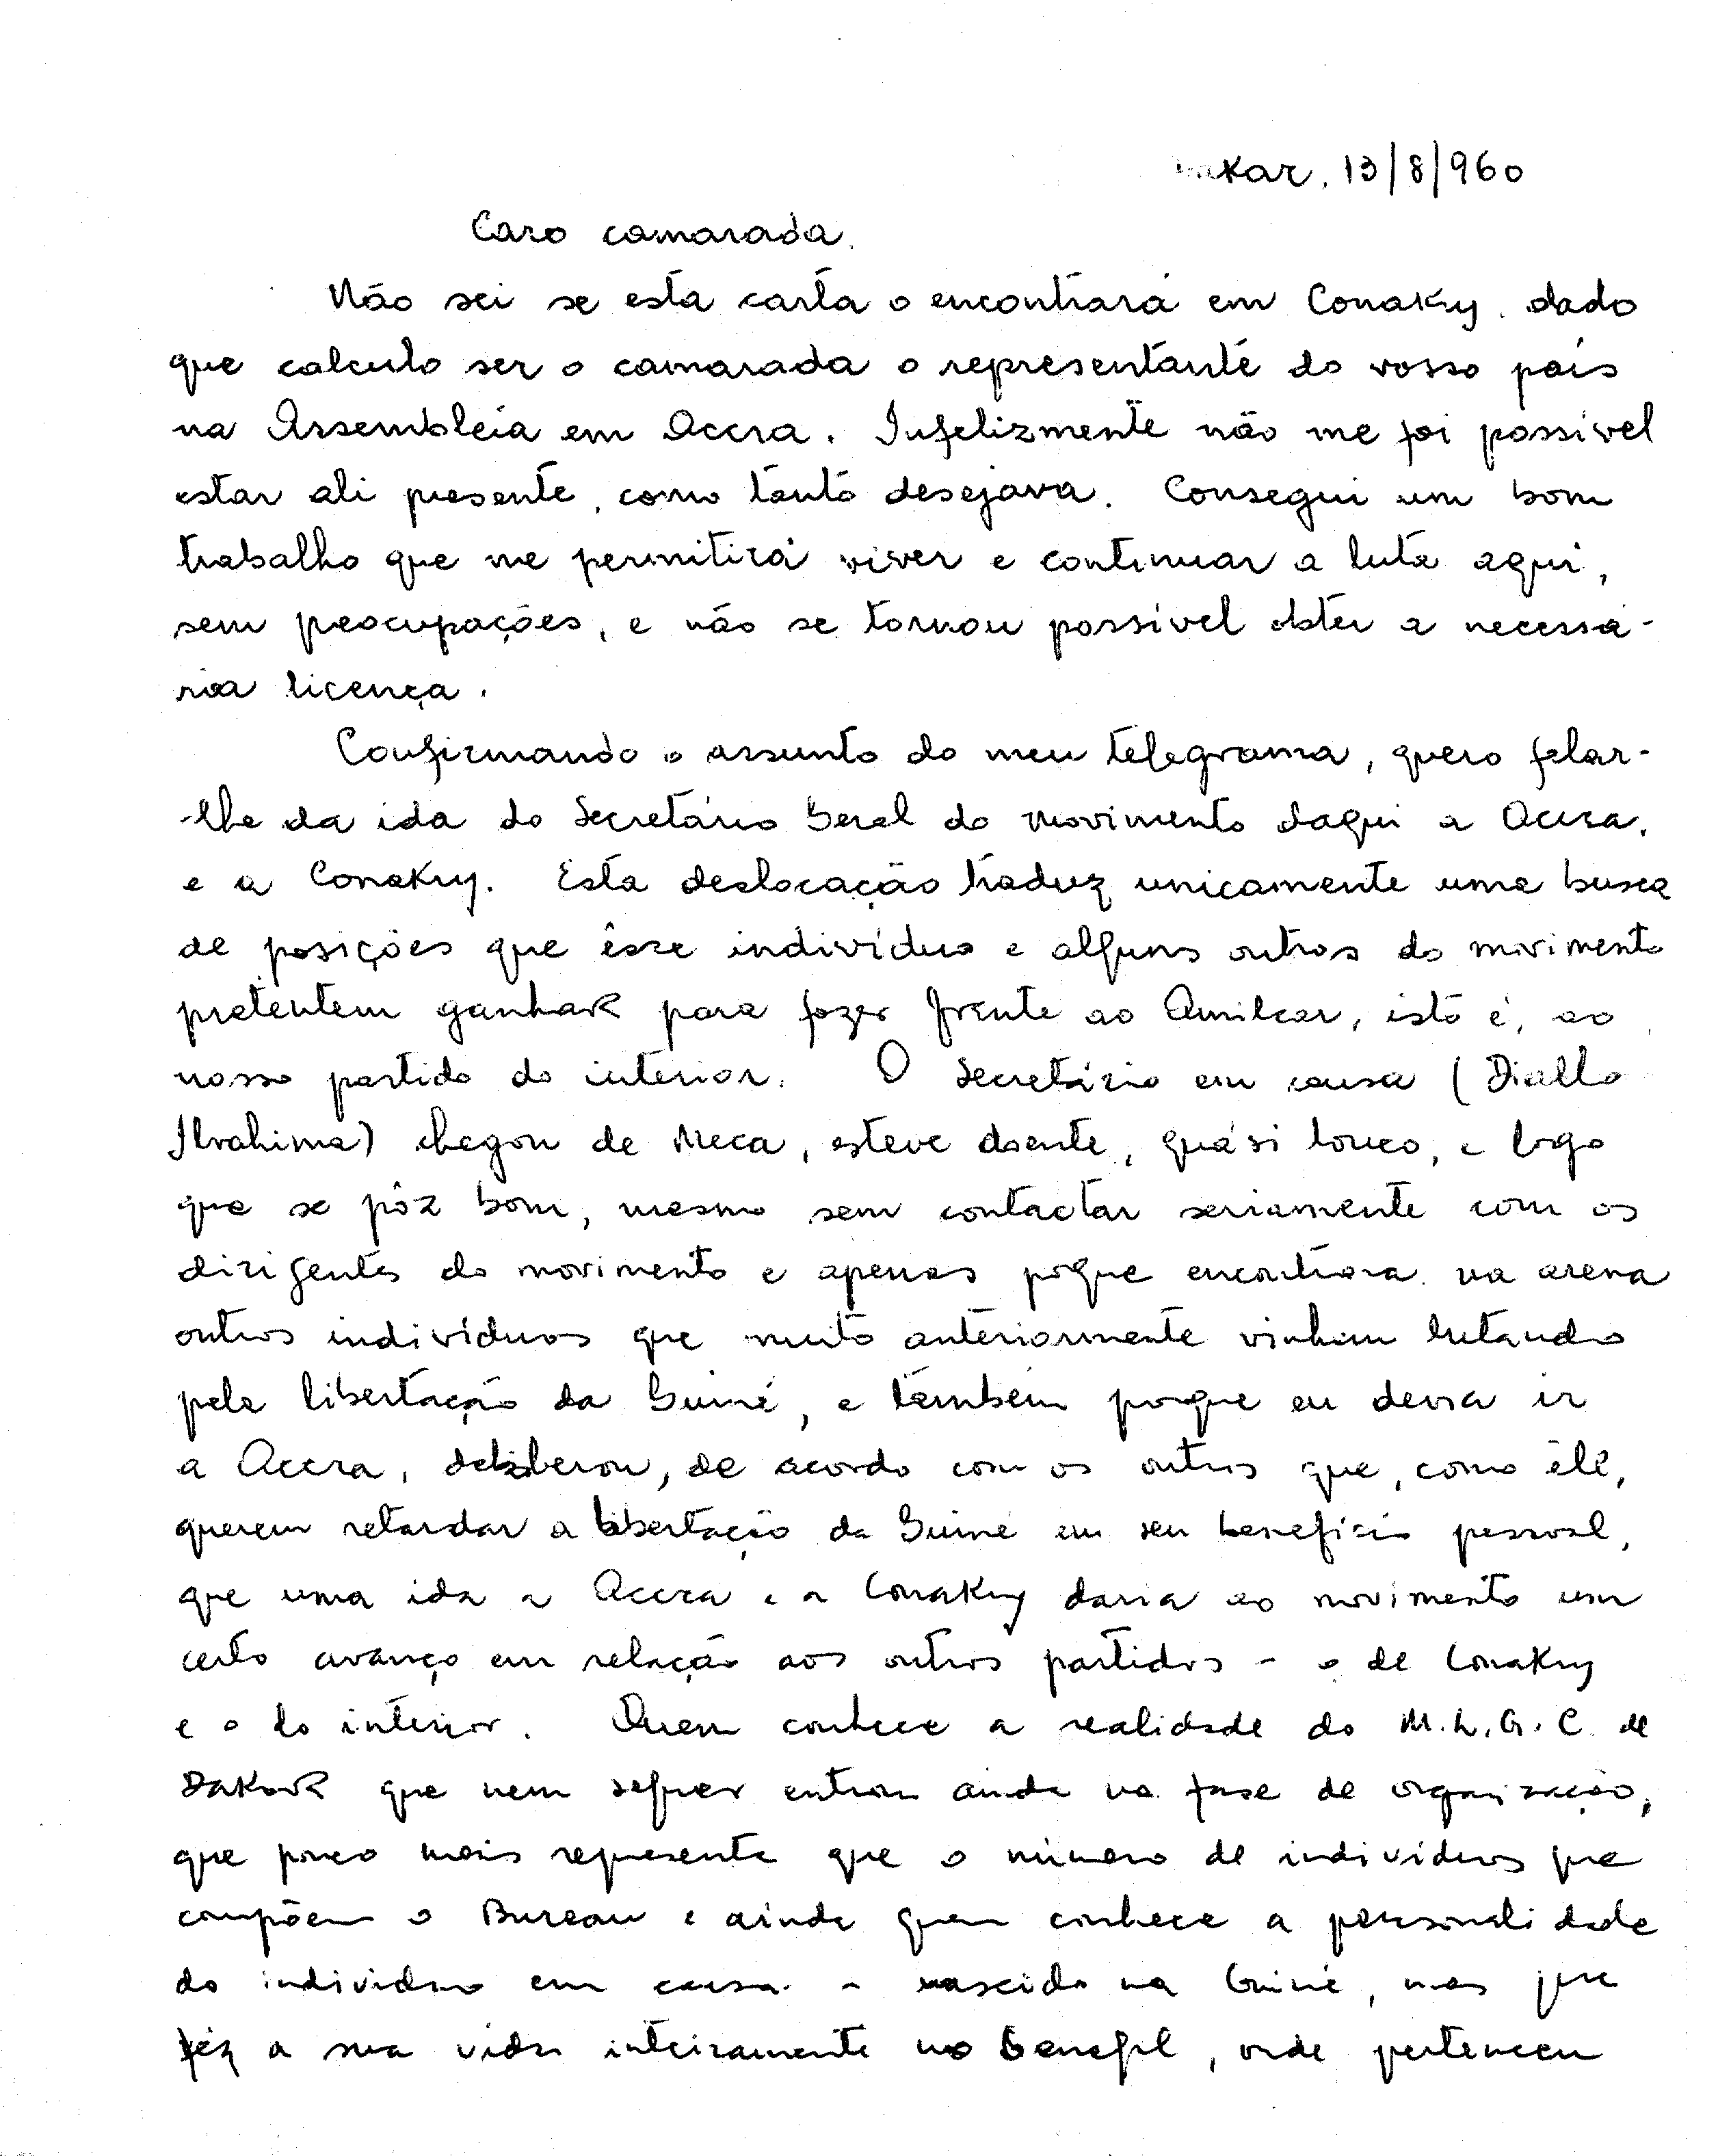 Dakar, 13/8/960
Caro camarada.
Não sei se esta carta o encontrará em Conakry, dado
que calculo ser o camarada o representante do vosso país
na Assembleia em Accra. Infelizmente não me foi possível
estar ali presente, como tanto desejava. Consegui um bom
trabalho que me permitirá viver e continuar a luta aqui,
sem preocupações, e não se tornou possível obter a necessá-
ria licença.
Confirmando o assunto do meu telegrama, quero falar-
-lhe da ida do Secretário Geral do movimento daqui a Accra,
e a Conakry. Esta deslocação traduz unicamente uma busca
de posições que êsse indivíduo e alguns outros do movimento
pretentem ganhar para fazer frente ao Amilcar, isto é, ao
nosso partido do interior. O Secretário em causa (Diallo
Ibrahima) chegou de Meca, esteve doente, quási louco, e logo
que se pôz bom, mesmo sem contactar seriamente com os
dirigentes do movimento e apenas porque encontrara na arena
outros indivíduos que muito anteriormente vinham lutando
pela libertação da Guiné, e também porque eu devia ir
a Accra, deliberou, de acordo com os outros que, como êle,
querem retardar a libertação da Guiné em seu benefício pessoal,
que uma ida a Accra e a Conakry daria ao movimento um
certo avanço em relação aos outros partidos - o de Conakry
e o do interior. Quem conhece a realidade do M.L.G.C. de
Dakar que nem sequer entrou ainda na fase de organização,
que pouco mais representa que o número de indivíduos que
compõem o Bureau e ainda quem conhece a personalidade
do indivíduo em causa - nascido na Guiné, mas que
fêz a sua vida inteiramente no Senegal, onde pertenceu